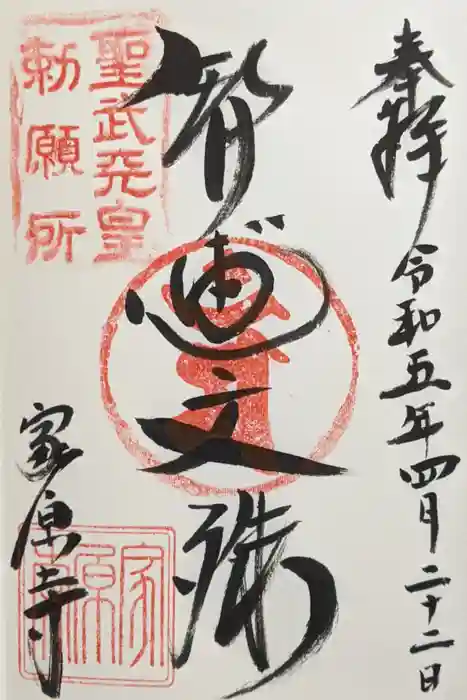 奉拝 令和五年四月二十二日
智恵文殊
聖武天皇
勅願所
家原寺
家原寺